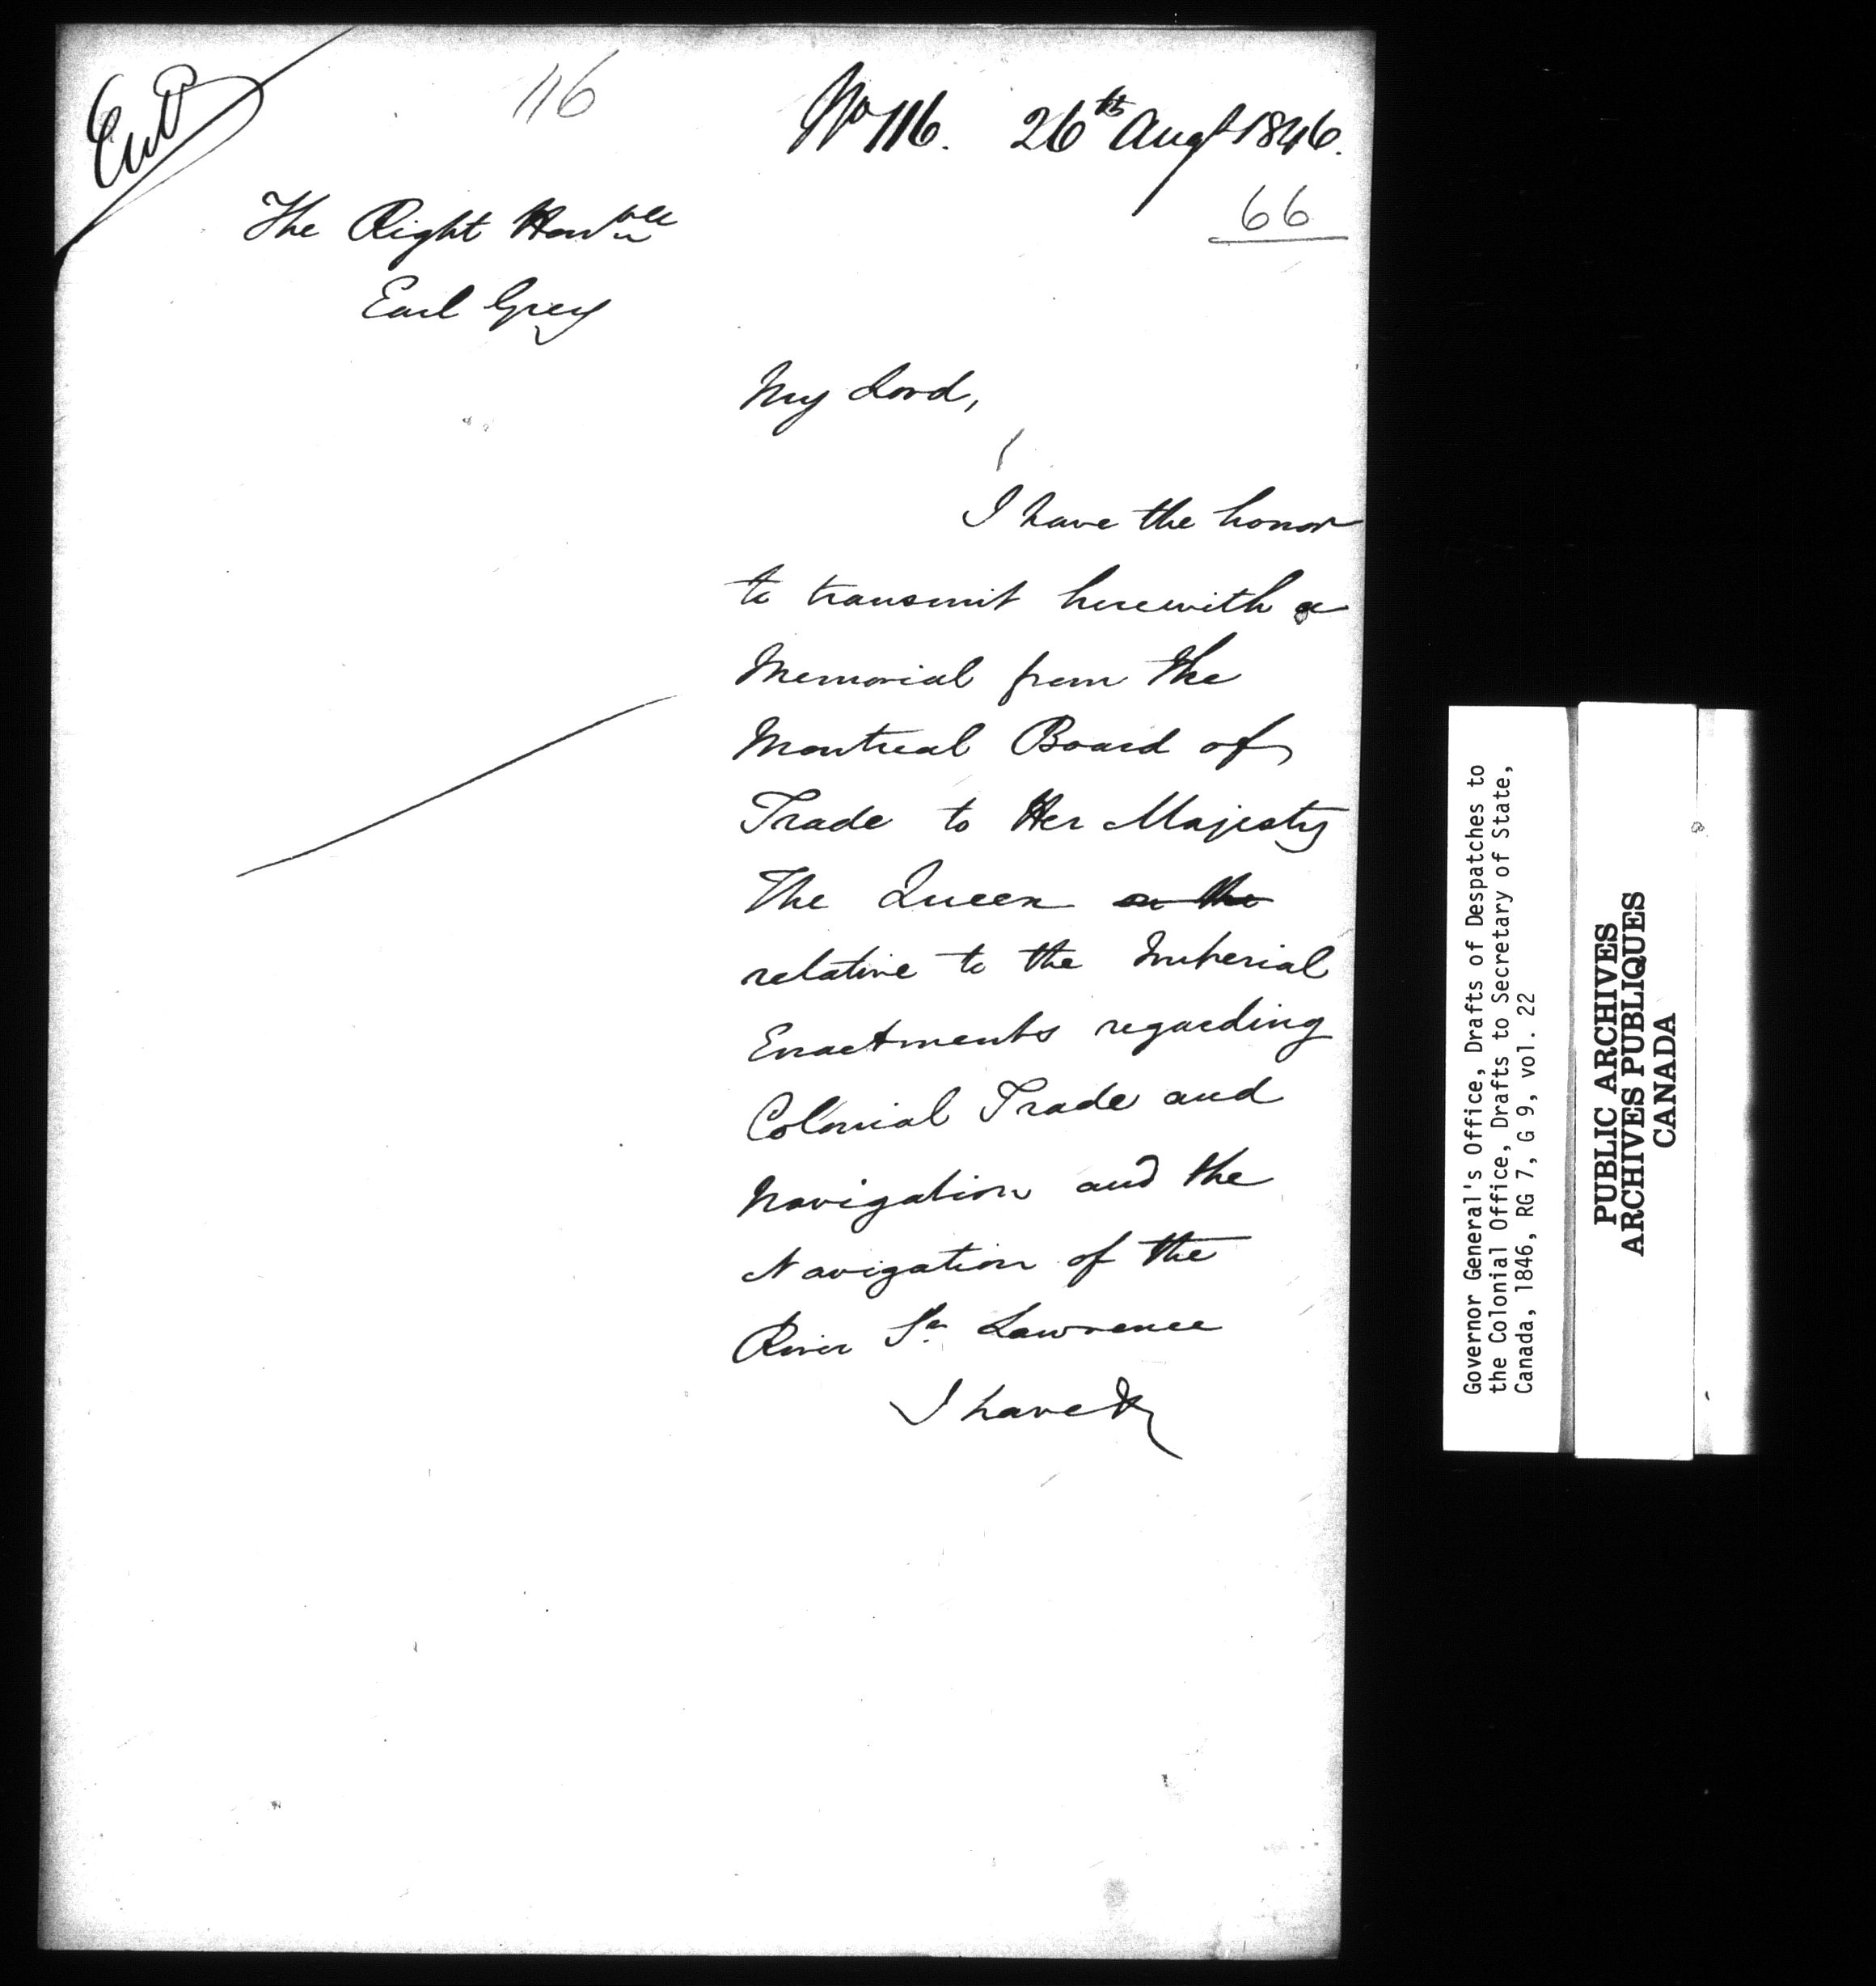 Entd
116
No 116. 26th Augt 1846.
66
The Right Honble
Earl Grey
My Lord,
I have the honor
to transmit herewith a
Memorial from the
Montreal Board of
Trade to Her Majesty
The Queen on the
relative to the Imperial
Enactments regarding
Colonial Trade and
Navigation and the
Navigation of the
River St. Lawrence
I have &
Governor General's Office, Drafts of Despatches to
the Colonial Office, Drafts to Secretary of State,
Canada, 1846, RG 7, G 9, vol. 22
PUBLIC ARCHIVES
ARCHIVES PUBLIQUES
CANADA